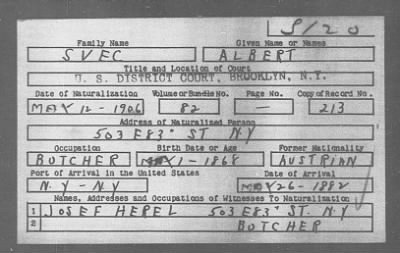 S/20
Family Name Given Name or Names
SVEC ALBERT
Title and Location of Court
U. S. DISTRICT COURT, BROOKLYN, N.Y.
Date of Naturalization Volume or Bundle No. Page No. Copy of Record No.
MAY 12 - 1906 82 — 213
Address of Naturalized Person
503 E 83" ST N.Y
Occupation Birth Date or Age Former Nationality
BUTCHER MAY 1 - 1868 AUSTRIAN
Port of Arrival in the United States Date of Arrival
N.Y - N.Y MAY 26 - 1882
Names, Addresses and Occupations of Witnesses To Naturalization
1 JOSEF HEREL 503 E 83" ST. N.Y
2 BUTCHER